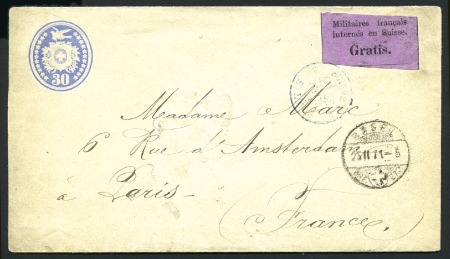 30
Militaires français
internés en Suisse.
Gratis.
Madame Marc
6 Rue d'Amsterdam
à Paris
(France)
25 II 71 - 5